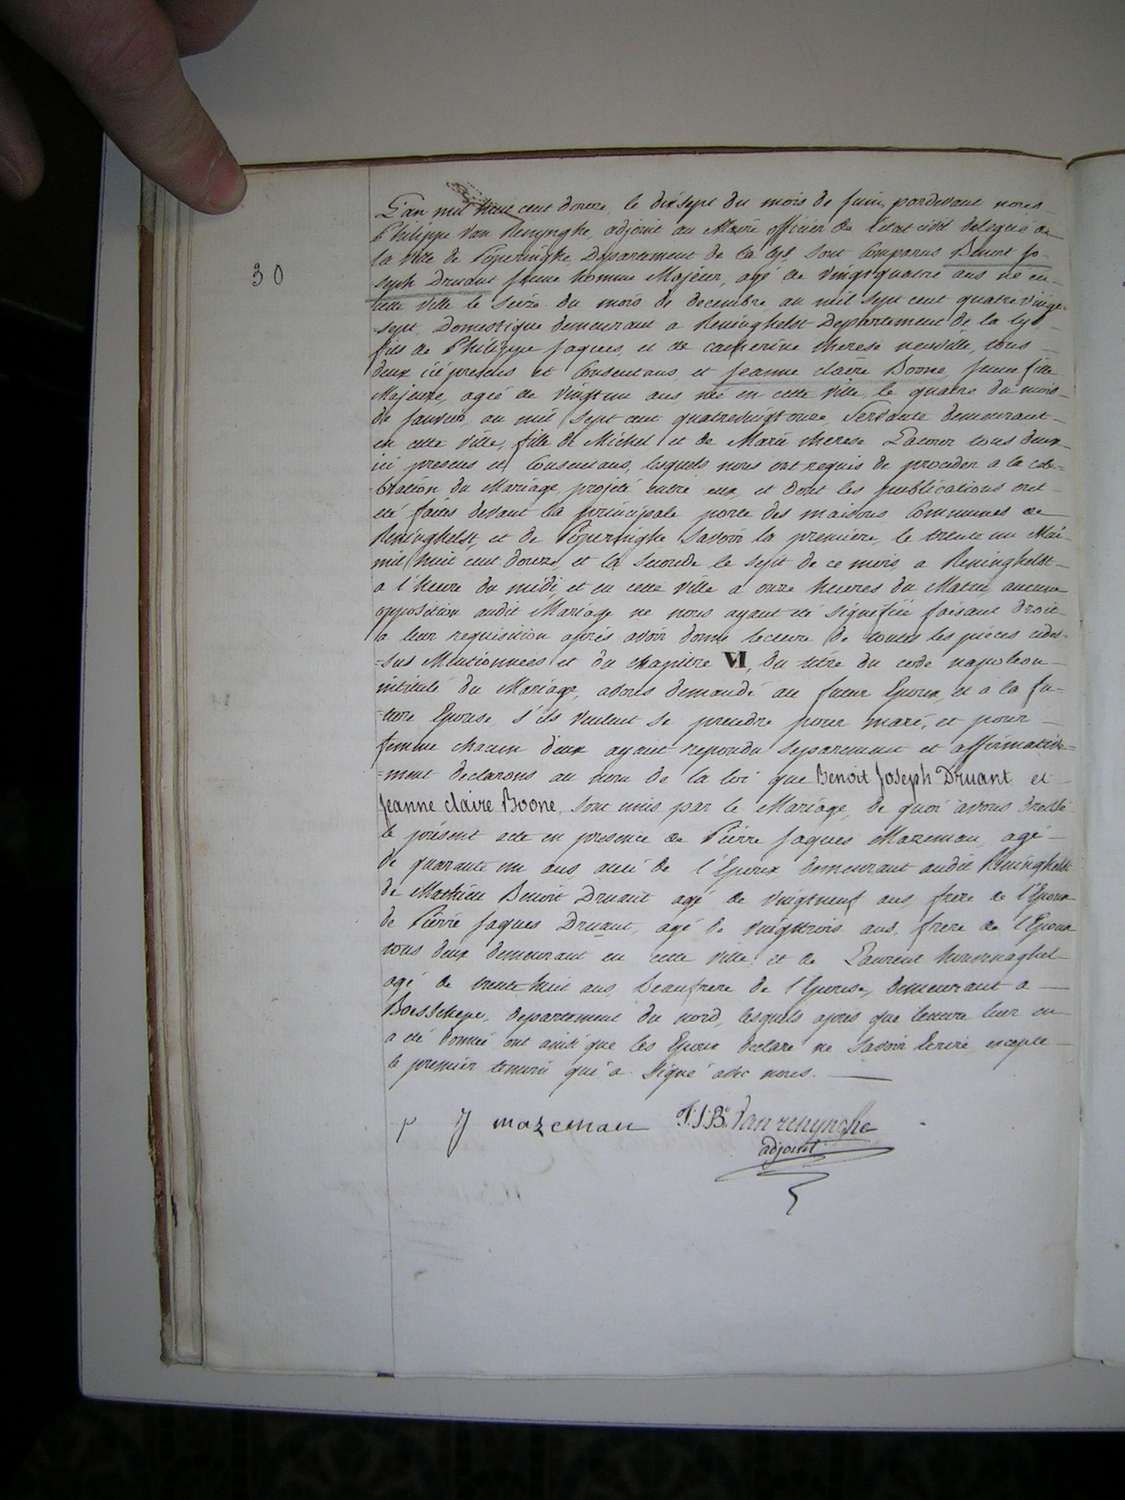 30
L'an mil huit cent douze, le dix sept du mois de juin, pardevant nous
Philippe Van Renynghe, adjoint au Maire officier de l'etat civil delegué de
la ville de Poperinghe, Departement de la Lys, sont comparus Benoit Jo-
seph Druant jeune homme Majeur, agé de vingt quatre ans né en
cette ville le seize du mois de decembre au mil sept cent quatre vingt
sept, Domestique demeurant a Reninghelst Departement de la Lys
fils de Philippe Jaques, et de catherine therese neuville, tous
deux ici presens et Consentans, et Jeanne claire Boone, jeune fille
Majeure, agée de vingt un ans née en cette ville le quatre du mois
de janvier au mil sept cent quatrevingt onze Servante demeurant
en cette ville, fille de Michel et de Marie therese tous deux
ici presens et Consentans, lesquels nous ont requis de proceder a la cele-
bration du Mariage projeté entre eux, et dont les publications ont
eté faites devant la principale porte des maisons Communes de
Reninghelst, et de Poperinghe Savoir la premiere, le trente un Mai
mil huit cent douze, et la seconde le sept de ce mois a Reninghelst
a l'heure du midi, et en cette ville a onze heures du Matin, aucune
opposition audit Mariage ne nous ayant eté signifiée faisant droit
a leur requisition aprés avoir donné lecture de toutes les pièces cides-
sus Mentionnées et du chapitre VI, du titre du code napoleon
intitulé du Mariage, avons demandé au futur Epoux, et à la fu-
ture Epouse s'ils veulent se prendre pour mari, et pour
femme chacun d'eux ayant repondu separement et affirmative-
ment declarons au nom de la loi que Benoit Joseph Druant et
Jeanne claire Boone, sont unis par le Mariage, de quoi avons dressé
le présent acte en presence de Pierre Jaques Mazeman, agé
de quarante un ans ami de l'Epoux demeurant audit Reninghelst
de Mathieu Benoit Druant agé de vingtneuf ans frere de l'Epoux
de Pierre Jaques Druant, agé de vingttrois ans, frere de l'Epoux
tous deux demeurant en cette ville, et de Laurent
agé de trente huit ans, beaufrere de l'Epouse, demeurant a
Boesschepe, departement du nord, lesquels apres que lecture leur en
a eté donnée ont ainsi que les Epoux declaré ne savoir Ecrire excepté
le premier temoin qui a Signé avec nous.
p J mazeman P.J.B. Van renynghe
adjoint